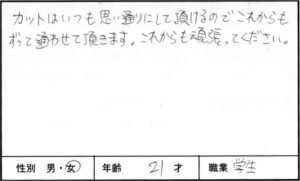 カットはいつも思い通りにして頂けるのでこれからも
ずっと通わせて頂きます。これからも頑張ってください。
性別 男・女 年齢 21 才 職業 学生